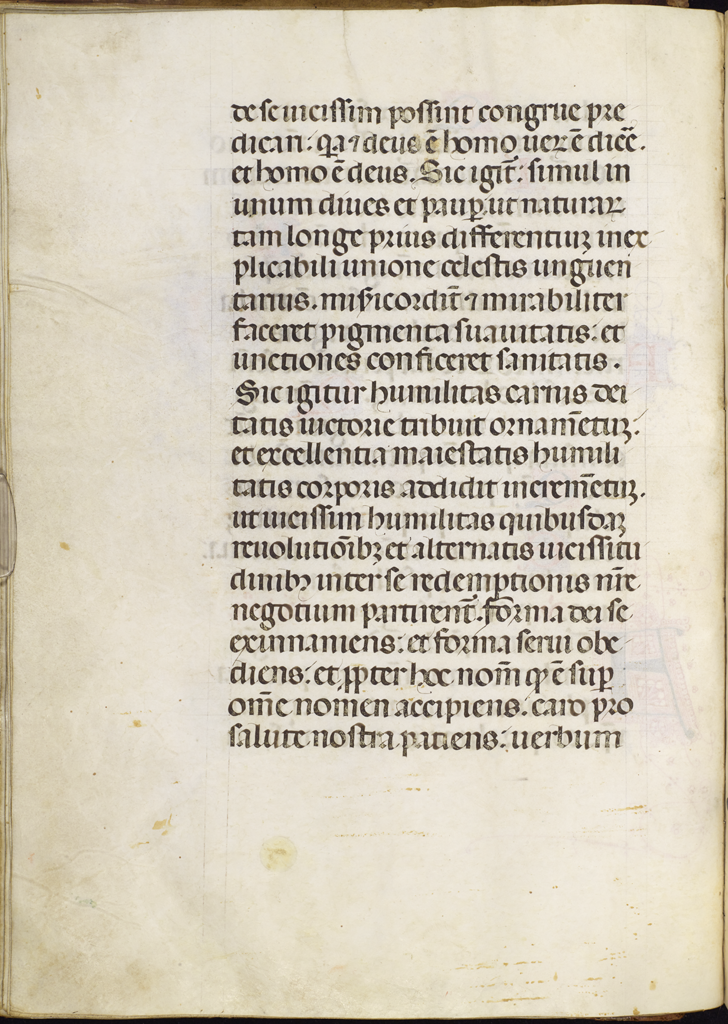 de se uicissim possint congrue pre
dicari: q̄a ⁊ deus ē homo uere ē dicē.
et homo ē deus. Sic igit̄: simul in
unum diues et paup̲ ut naturaꝝ
tam longe prius differentiuꝫ inex
plicabili unione celestis unguen
tarius. mis̄icordit̄ ⁊ mirabiliter
faceret pigmenta suauitatis: et
unctiones conficeret sanitatis.
Sic igitur humilitas carnis dei
tatis uictorie tribuit ornam̄etuꝫ.
et excellentia maiestatis humili
tatis corporis addidit increm̄etuꝫ.
ut uicissim humilitas quibusdaꝫ
reuolutiōibꝫ et alternatis uicissitu
dinibꝫ inter se redemptionis nr̄e
negotium partirent̄. forma dei se
exinnaniens: et forma serui obe
diens: et ꝓpter hoc nom̄ qꝫ ē suꝑ
om̄e nomen accipiens. caro pro
salute nostra patiens: uerbum